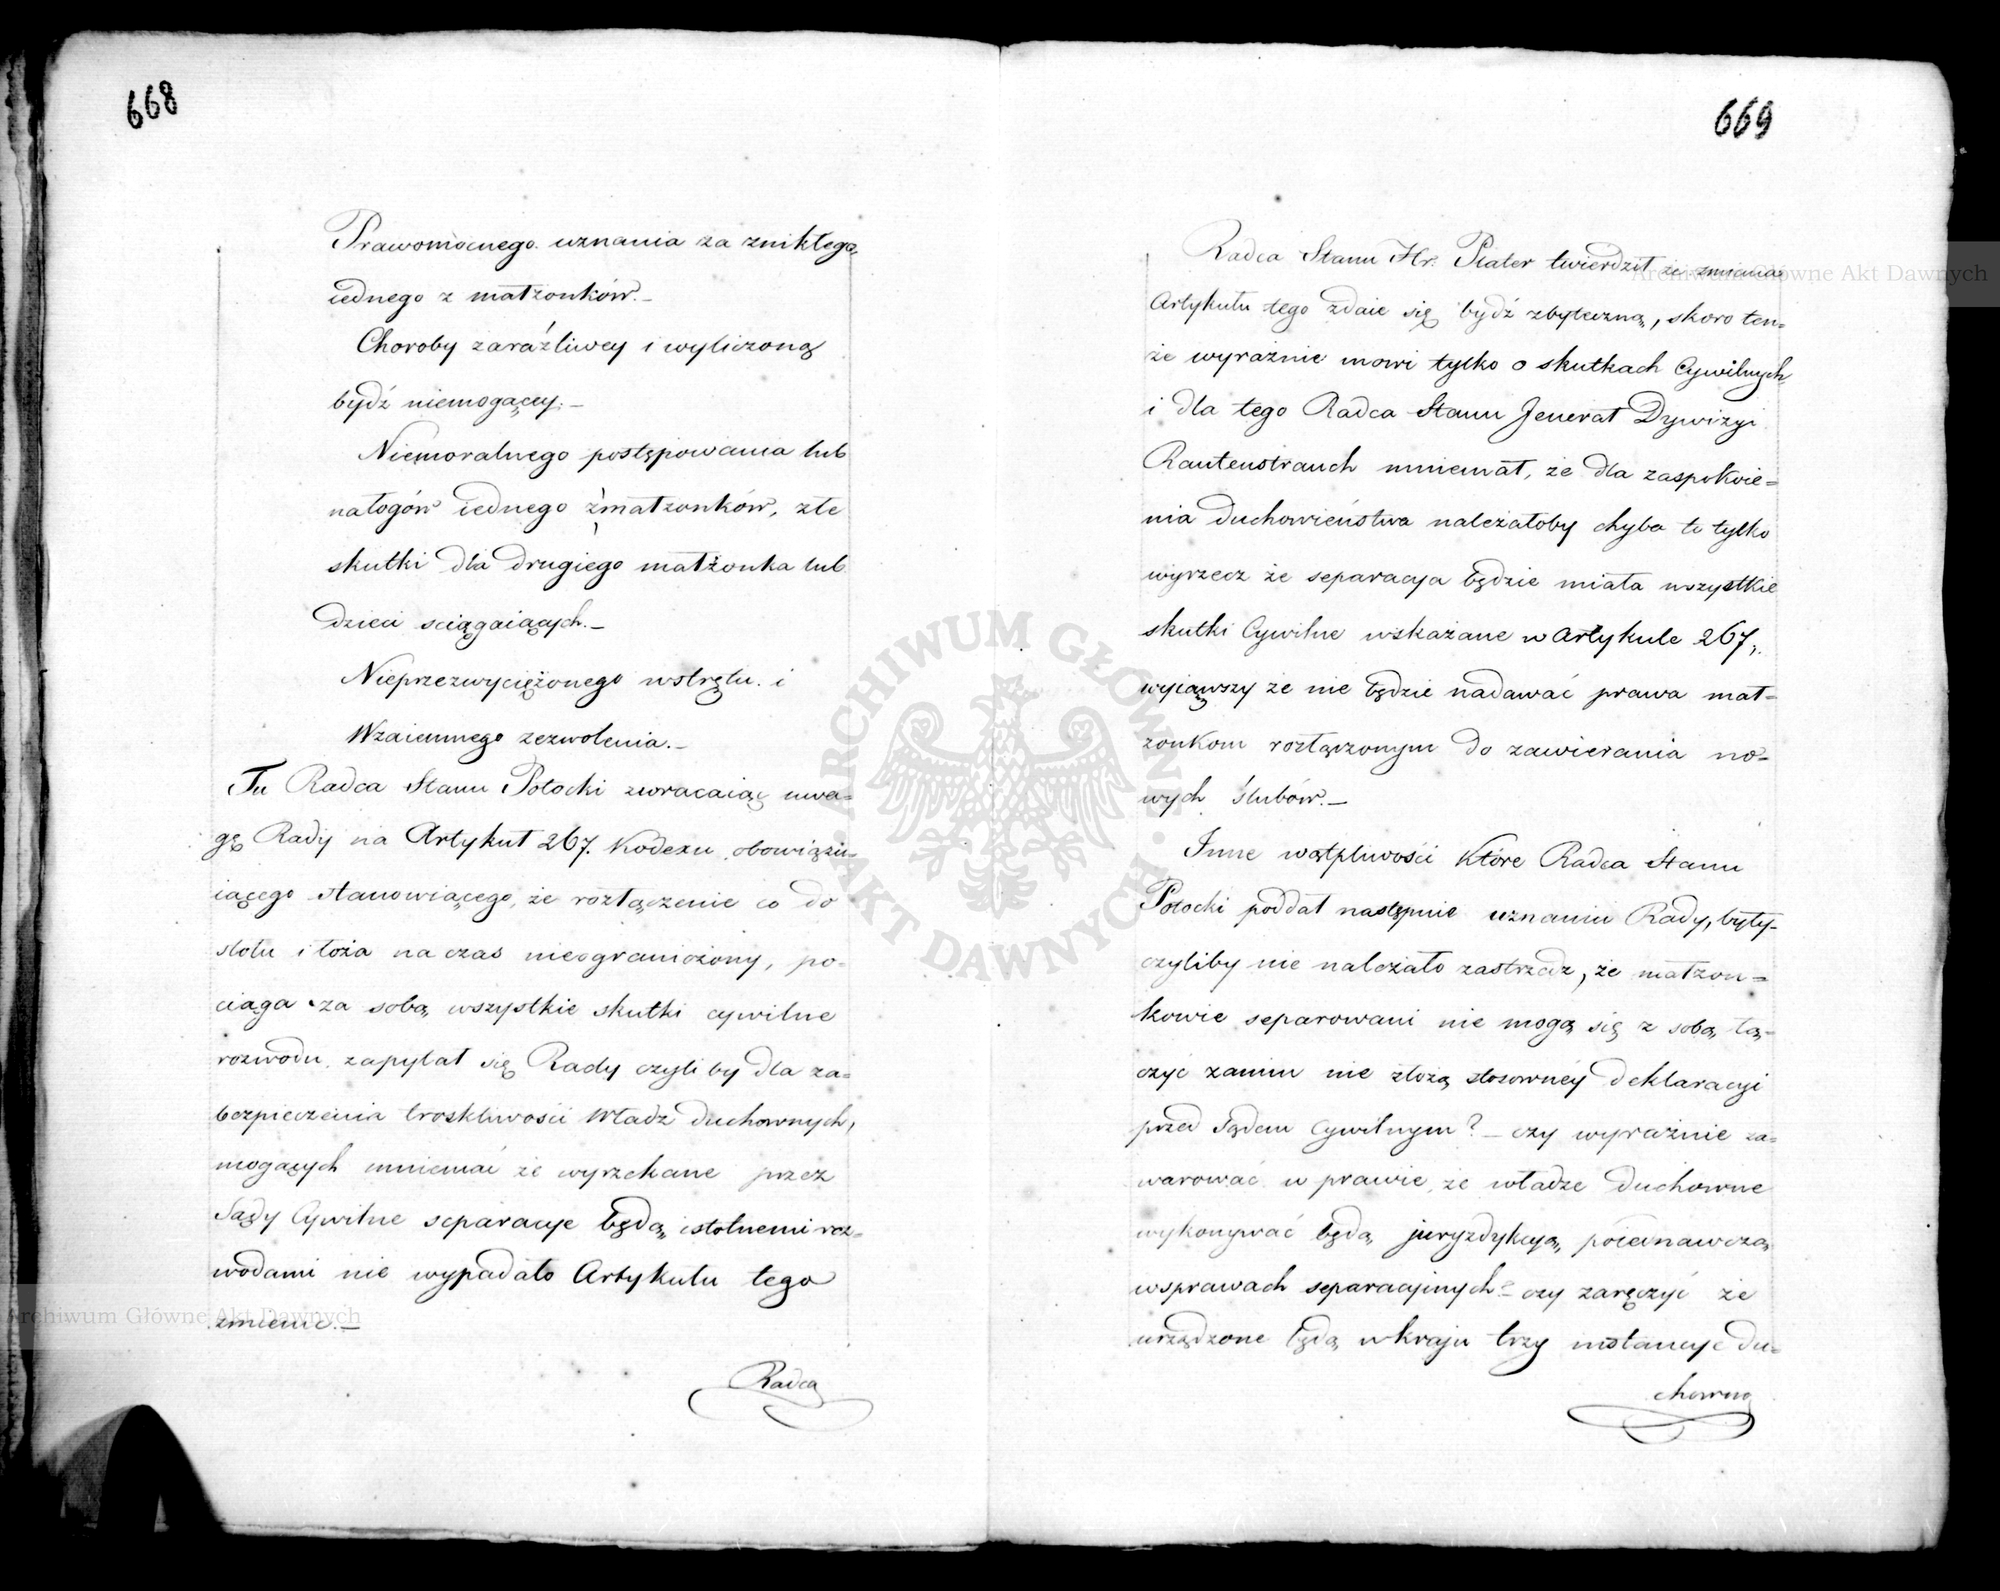 668
Prawomocnego uznania za znikłego,
iednego z małżonków.—
Choroby zaraźliwey i wyliczoną
bydź niemogącey.—
Niemoralnego postępowania lub
nałogów iednego z małżonków, złe
skutki dla drugiego małżonka lub
dzieci sciągaiących.—
Nieprzezwyciężonego wstrętu i
Wzaiemnego zezwolenia.—
Tu Radca Stanu Potocki zwracaiąc uwa=
gę Rady na Artykuł 267. Kodexu obowiązu=
iącego stanowiącego, że rozłączenie co do
stołu i łoża na czas nieograniczony, po=
ciąga za sobą wszystkie skutki cywilne
rozwodu, zapytał się Rady czyliby dla za=
bezpieczenia troskliwości Władz duchownych,
mogących mniemać że wyrzekane przez
Sądy Cywilne separacye będą istotnemi roz=
wodami nie wypadało Artykułu tego
zmienić.—
Radca
669
Radca Stanu Hr. Plater twierdził że zmiana
Artykułu tego zdaie się bydź zbyteczną, skoro ten=
że wyraźnie mówi tylko o skutkach Cywilnych
i dla tego Radca Stanu Jenerał Dywizyi
Rautenstrauch mniemał, że dla zaspokoie=
nia duchowieństwa należałoby chyba to tylko
wyrzecz że separacya będzie miała wszystkie
skutki Cywilne wskazane w Artykule 267,
wyiąwszy że nie będzie nadawać prawa mał=
żonkom rozłączonym do zawierania no=
wych ślubów.—
Inne wątpliwości które Radca Stanu
Potocki poddał następnie uznaniu Rady, były,
czyliby nie należało zastrzedz, że małżon=
kowie separowani nie mogą się z sobą łą=
czyć zanim nie złożą stosownéy deklaracyi
przed Sądem Cywilnym? — czy wyraźnie za=
warować w prawie, że władze duchowne
wykonywać będą juryzdykcyą poiednawczą
w sprawach separacyinych? — czy zaręczyć że
urządzone będą w kraju trzy instancye du=
chowne
Archiwum Główne Akt Dawnych
Archiwum Główne Akt Dawnych
ARCHIWUM GŁÓWNE · AKT DAWNYCH ·